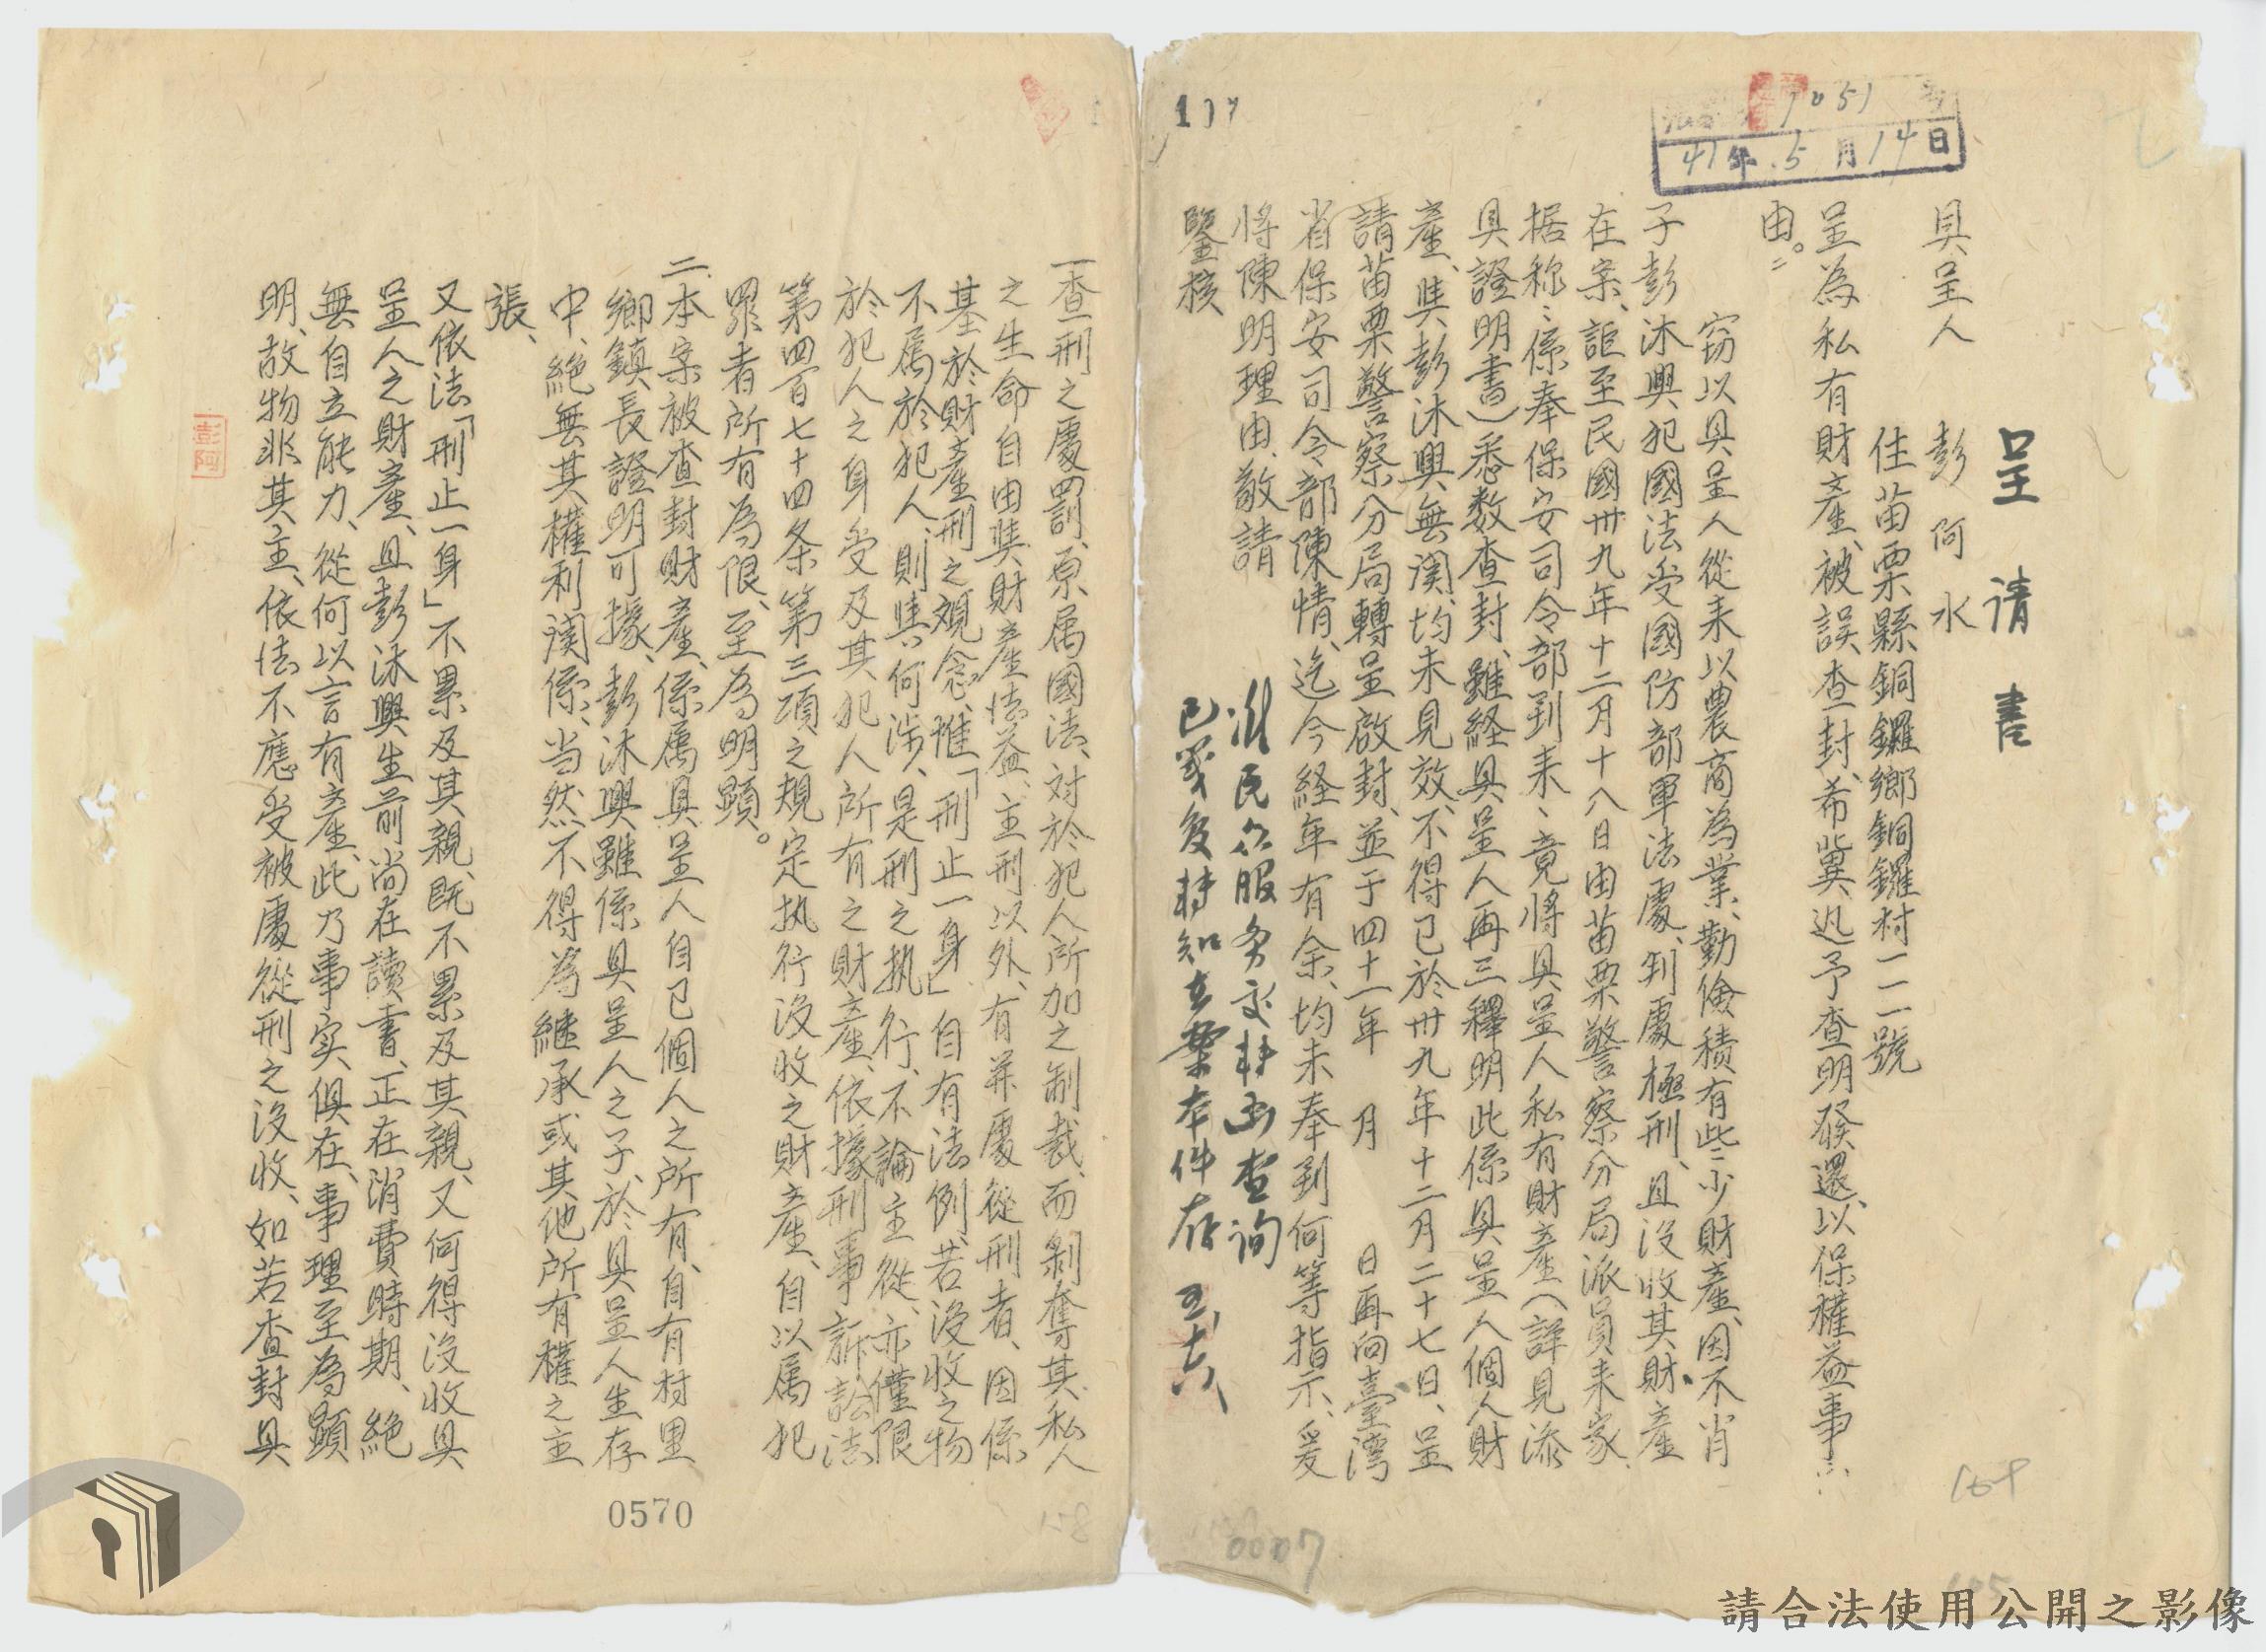 1051
41年5月14日
呈請書
具呈人　彭阿水
住苗栗縣銅鑼鄉銅鑼村一一一號
呈為私有財產、被誤查封、希冀迅予查明發還、以保權益事
由。
竊以具呈人從来以農商為業、勤儉積有些少財產、因不肖
子彭沐興犯國法受國防部軍法處、判處極刑、且沒收其財產
在案、詎至民國卅九年十二月十八日由苗栗警察分局派員来家、
据称、係奉保安司令部到来、竟將具呈人私有財產(詳見添
具證明書)悉数查封、雖経具呈人再三釋明此係具呈人個人財
產、與彭沐興無関、均未見效、不得已於卅九年十二月二十七日、呈
請苗栗警察分局轉呈啟封、並于四十一年　月　日再向臺湾
省保安司令部陳情、迄今経年有余、均未奉到何等指示、爰
將陳明理由、敬請
鑒核
民众服务
查询
107
0007
一查刑之處罰、原属國法、対於犯人所加之制裁、而剝奪其私人
之生命自由與財產法益、主刑以外、有並處從刑者、因係
基於財產刑之觀念、惟「刑止一身」自有法例、若沒收之物
不属於犯人、則與何涉、是刑之执行、不論主從、亦僅限
於犯人之身受及其犯人所有之財產、依據刑事訴訟法
第四百七十四条第三項之規定执行沒收之財產、自以属犯
罪者所有為限、至為明顕。
二.本案被查封財產、係属具呈人自己個人之所有、自有村里
鄉鎮長證明可據、彭沐興雖係具呈人之子、於具呈人生存
中、絕無其權利関係、当然不得為継承或其他所有權之主
張、
又依法「刑止一身」不累及其親、既不累及其親、又何得沒收具
呈人之財產、且彭沐興生前尚在讀書、正在消費時期、絕
無自立能力、從何以言有產、此乃事实俱在、事理至為顕
明、故物非其主、依法不應受被處從刑之沒收、如若查封具
彭阿
0570
158
請合法使用公開之影像